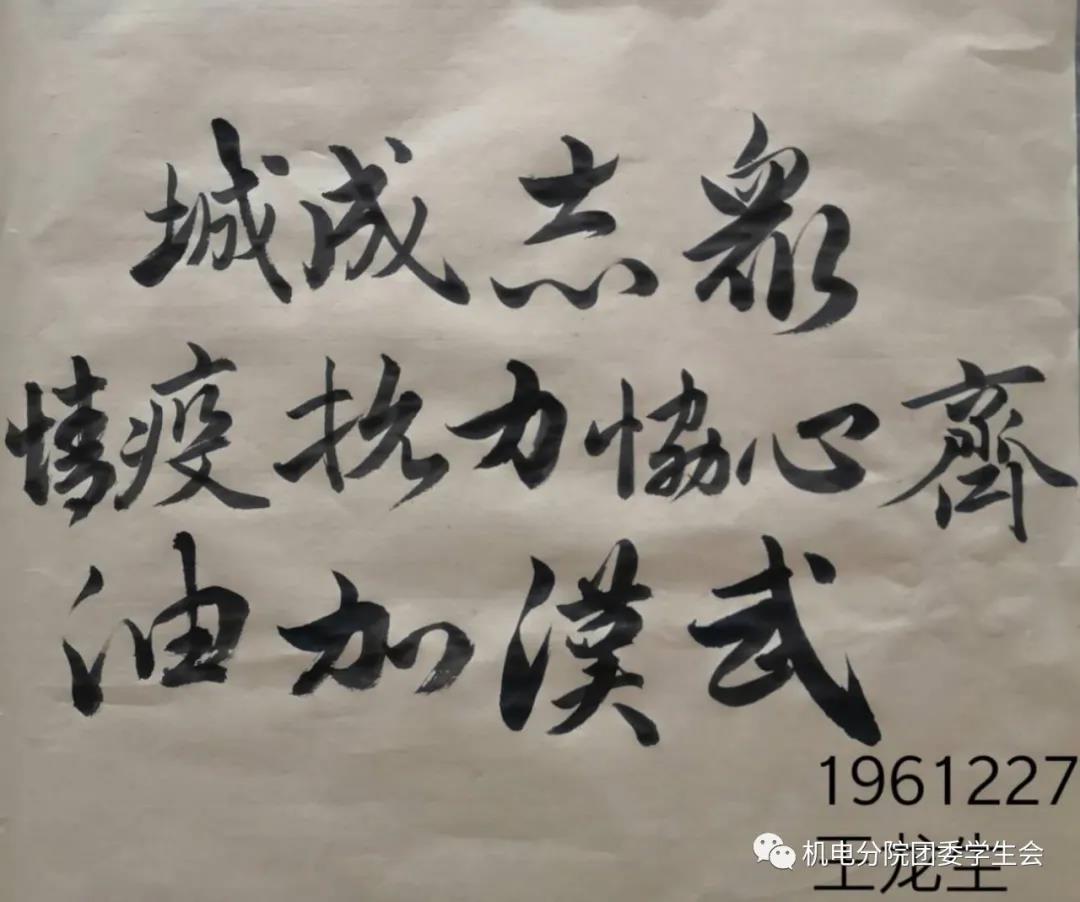 眾志成城
齊心恊力抗疫情
武漢加油
1961227
机电分院团委学生会
王龙